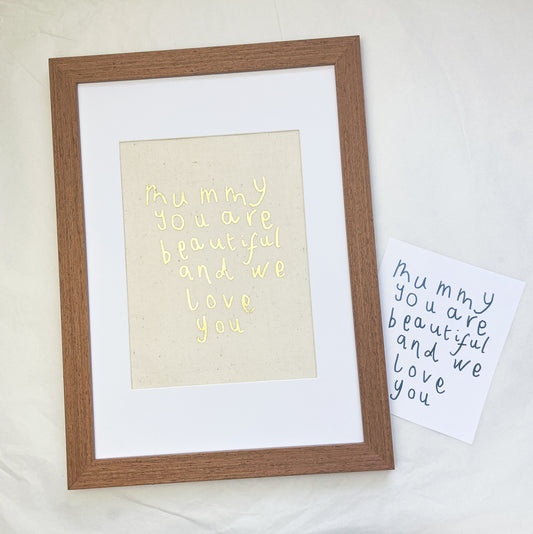 mummy
you are
beautiful
and we
love
you
mummy
you are
beautiful
and we
love
you